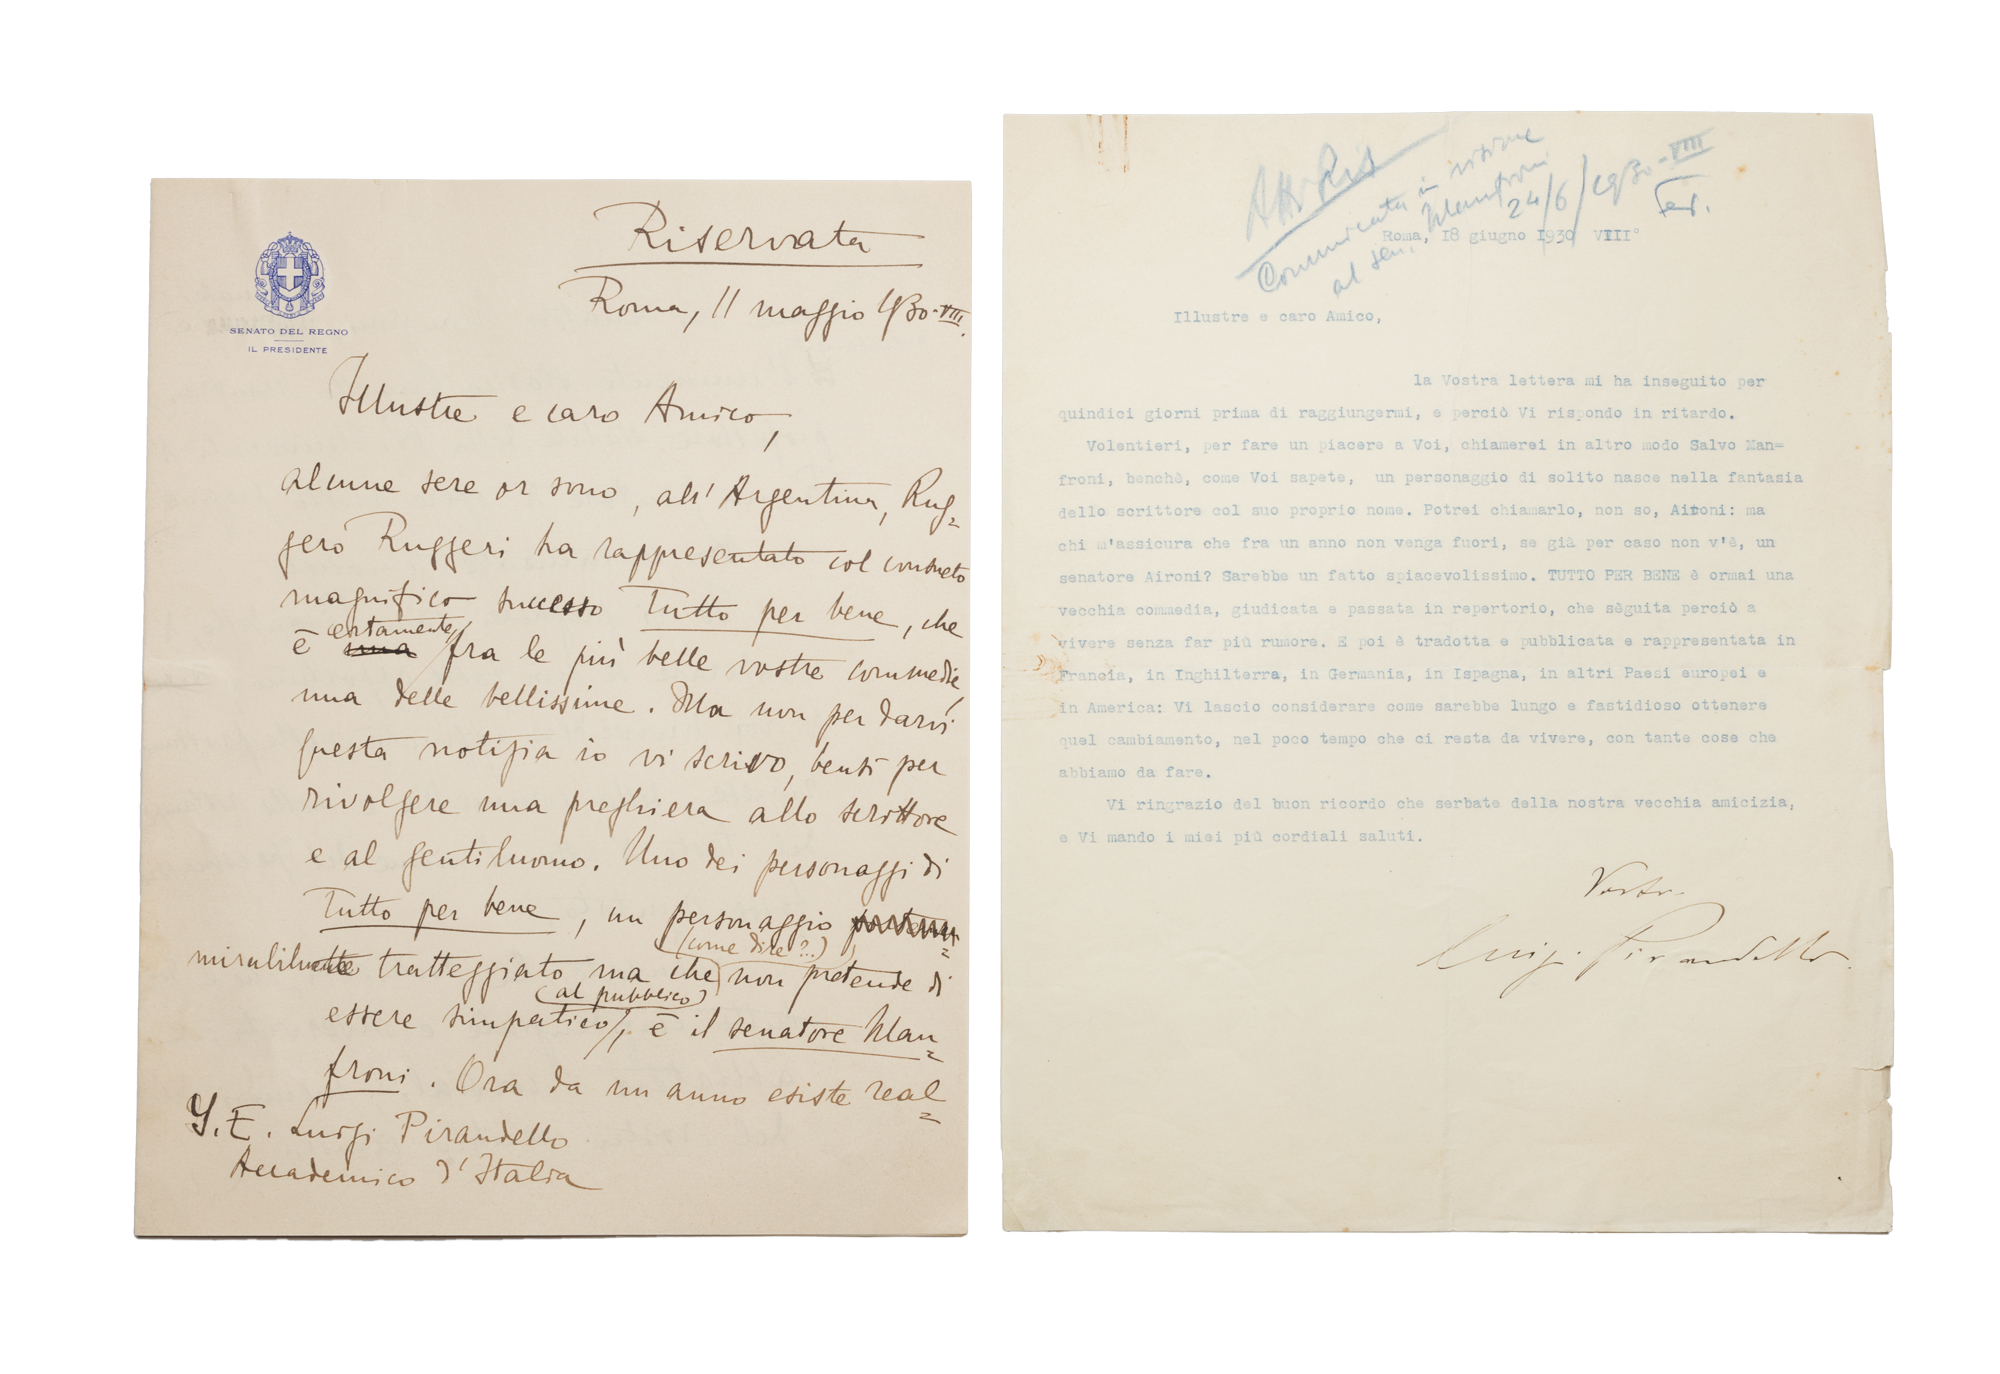 SENATO DEL REGNO
IL PRESIDENTE
Riservata
Roma, 11 maggio 1930-VIII.
Illustre e caro Amico,
alcune sere or sono, all'Argentina, Rug=
gero Ruggeri ha rappresentato col consueto
magnifico successo Tutto per bene, che
è certamente fra le più belle vostre commedie,
una delle bellissime. Ma non per darvi
questa notizia io vi scrivo, bensì per
rivolgere una preghiera allo scrittore
e al gentiluomo. Uno dei personaggi di
Tutto per bene, un personaggio
(come dire?...)
mirabilmente tratteggiato ma che non pretende di
(al pubblico)
essere simpatico, è il senatore Man=
froni. Ora da un anno esiste real=
S. E. Luigi Pirandello
Accademico d'Italia
Atti Ris
Comunicata in visione
al sen. Manfroni
24/6/1930-VIII
Roma, 18 giugno 1930 VIII°
Illustre e caro Amico,
la Vostra lettera mi ha inseguito per
quindici giorni prima di raggiungermi, e perciò Vi rispondo in ritardo.
Volentieri, per fare un piacere a Voi, chiamerei in altro modo Salvo Man=
froni, benchè, come Voi sapete, un personaggio di solito nasce nella fantasia
dello scrittore col suo proprio nome. Potrei chiamarlo, non so, Aironi: ma
chi m'assicura che fra un anno non venga fuori, se già per caso non v'è, un
senatore Aironi? Sarebbe un fatto spiacevolissimo. TUTTO PER BENE è ormai una
vecchia commedia, giudicata e passata in repertorio, che sèguita perciò a
vivere senza far più rumore. E poi è tradotta e pubblicata e rappresentata in
Francia, in Inghilterra, in Germania, in Ispagna, in altri Paesi europei e
in America: Vi lascio considerare come sarebbe lungo e fastidioso ottenere
quel cambiamento, nel poco tempo che ci resta da vivere, con tante cose che
abbiamo da fare.
Vi ringrazio del buon ricordo che serbate della nostra vecchia amicizia,
e Vi mando i miei più cordiali saluti.
Vostro
Luigi Pirandello